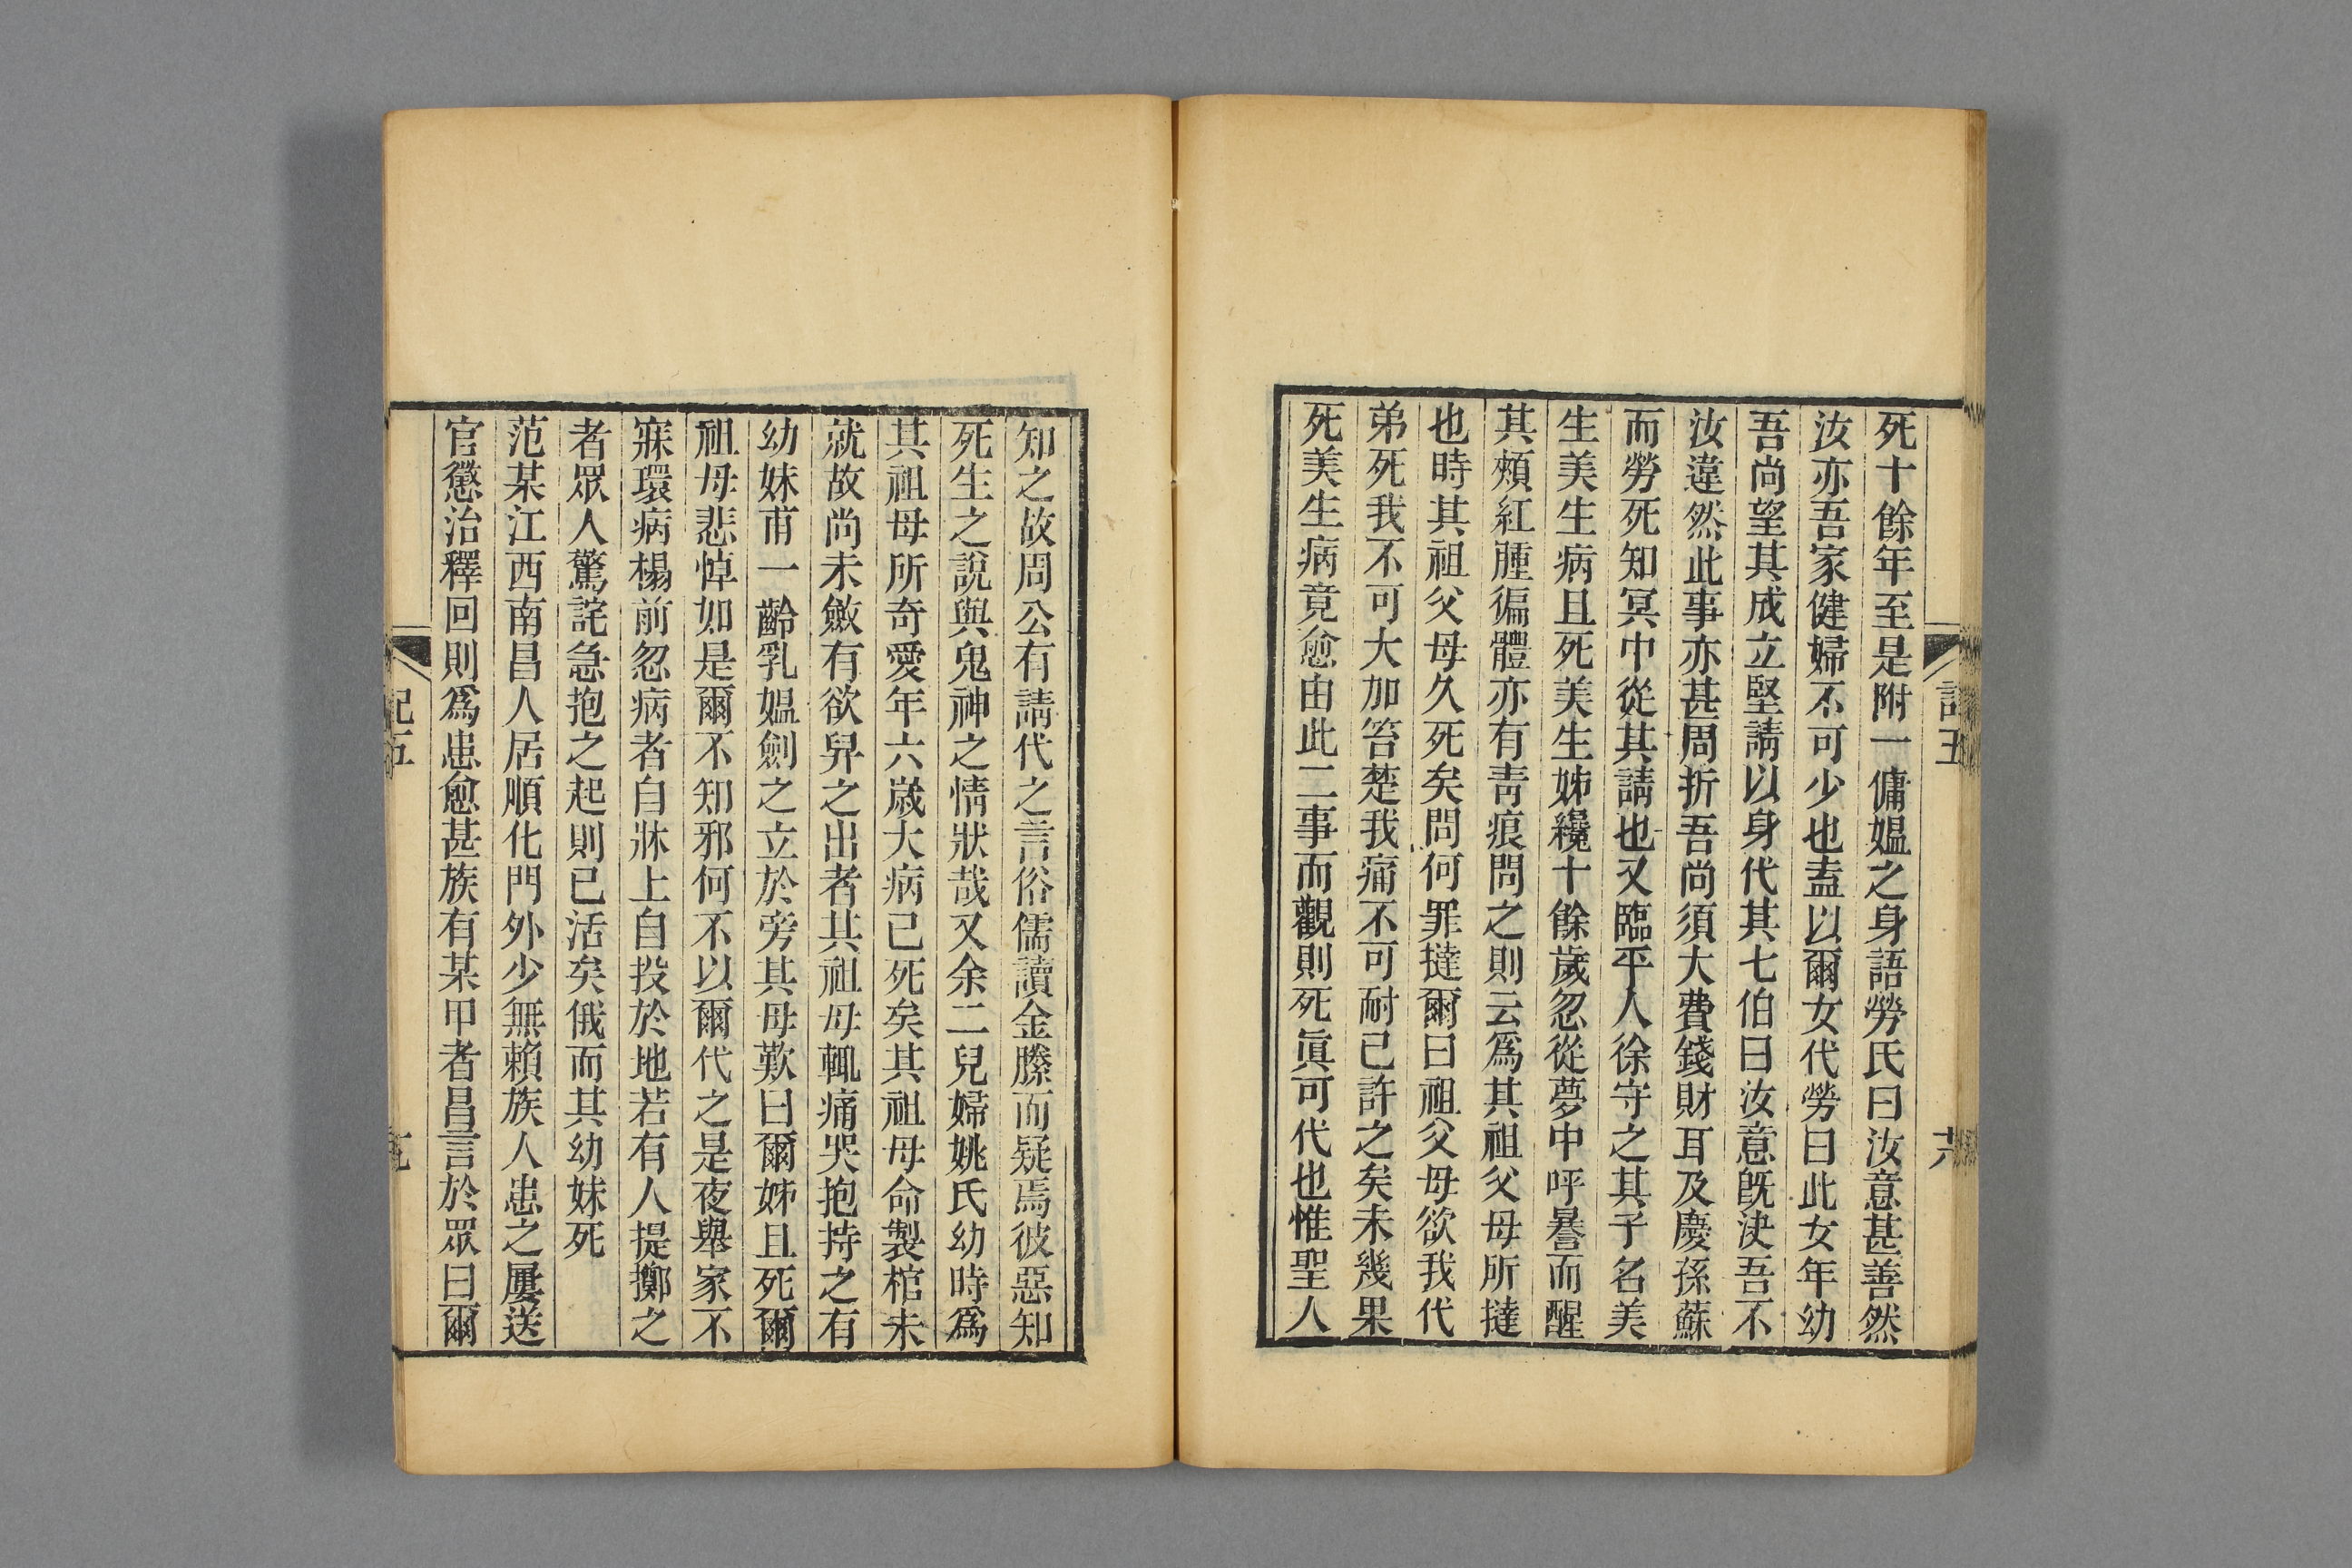 死十餘年至是附一傭媼之身語勞氏曰汝意甚善然
汝亦吾家健婦不可少也盍以爾女代勞曰此女年幼
吾尚望其成立堅請以身代其七伯曰汝意旣決吾不
汝違然此事亦甚周折吾尚須大費錢財耳及慶孫蘇
而勞死知冥中從其請也又臨平人徐守之其子名美
生美生病且死美生姊纔十餘歲忽從夢中呼謈而醒
其頰紅腫徧體亦有靑痕問之則云爲其祖父母所撻
也時其祖父母久死矣問何罪撻爾曰祖父母欲我代
弟死我不可大加笞楚我痛不可耐已許之矣未幾果
死美生病竟愈由此二事而觀則死眞可代也惟聖人
知之故周公有請代之言俗儒讀金縢而疑焉彼惡知
死生之說與鬼神之情狀哉又余二兒婦姚氏幼時爲
其祖母所奇愛年六歲大病已死矣其祖母命製棺未
就故尚未斂有欲舁之出者其祖母輒痛哭抱持之有
幼妹甫一齡乳媼劍之立於旁其母歎曰爾姊且死爾
祖母悲悼如是爾不知邪何不以爾代之是夜舉家不
寐環病榻前忽病者自牀上自投於地若有人提擲之
者眾人驚詫急抱之起則已活矣俄而其幼妹死
范某江西南昌人居順化門外少無賴族人患之屢送
官懲治釋回則爲患愈甚族有某甲者昌言於眾曰爾
記五